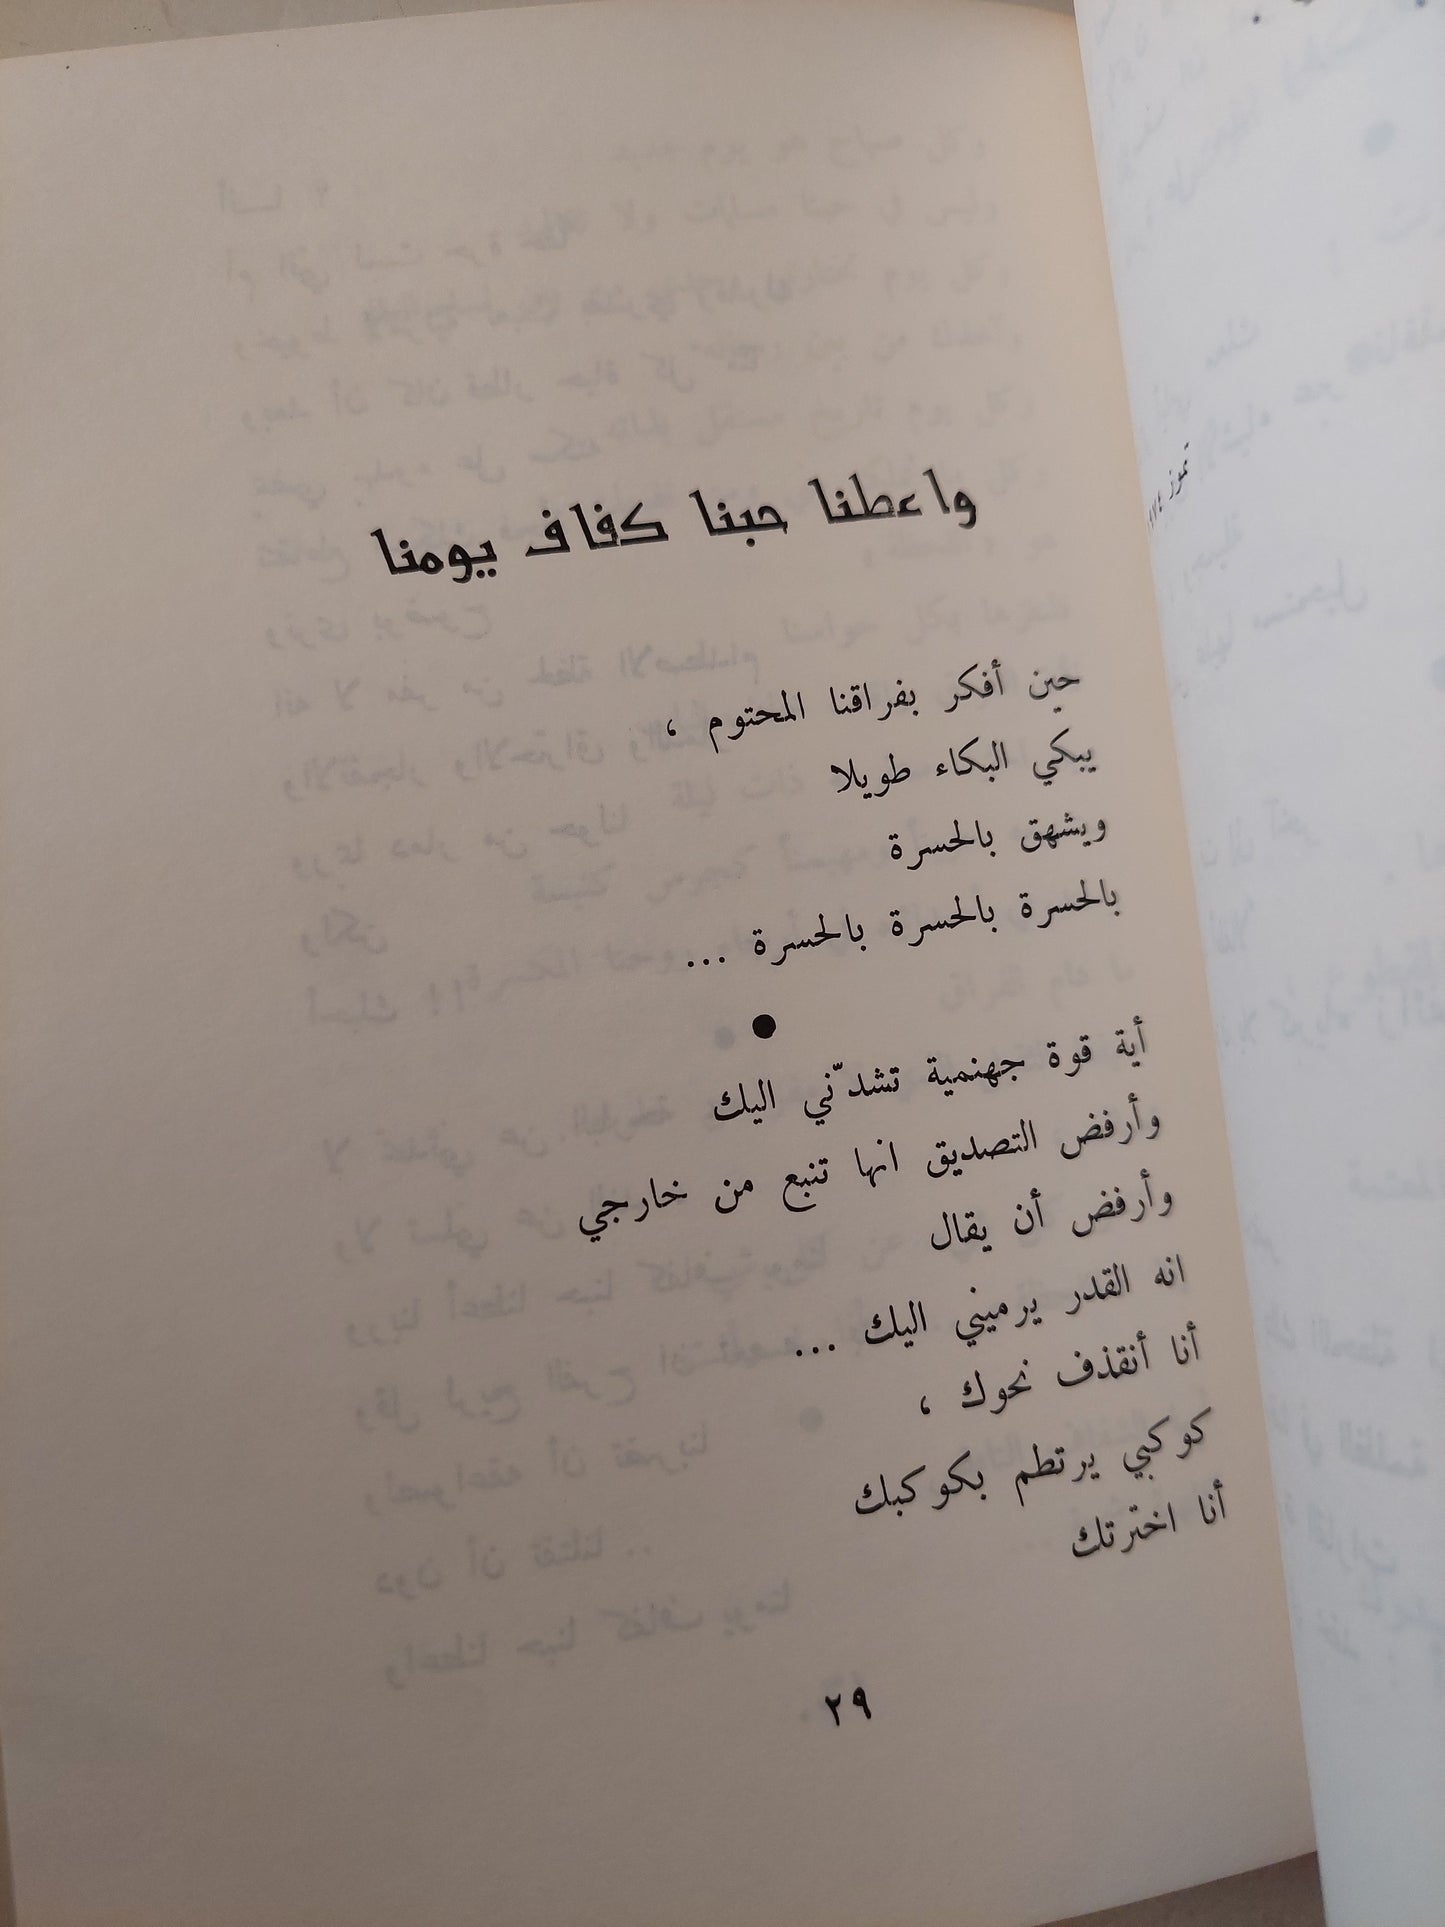 واعطنا حبنا كفاف يومنا
حين أفكر بفراقنا المحتوم ،
يبكي البكاء طويلا
ويشهق بالحسرة
بالحسرة بالحسرة بالحسرة ...
●
أية قوة جهنمية تشدّني اليك
وأرفض التصديق انها تنبع من خارجي
وأرفض أن يقال
انه القدر يرميني اليك ...
أنا أنقذف نحوك ،
كوكبي يرتطم بكوكبك
أنا اخترتك
٢٩
تموز